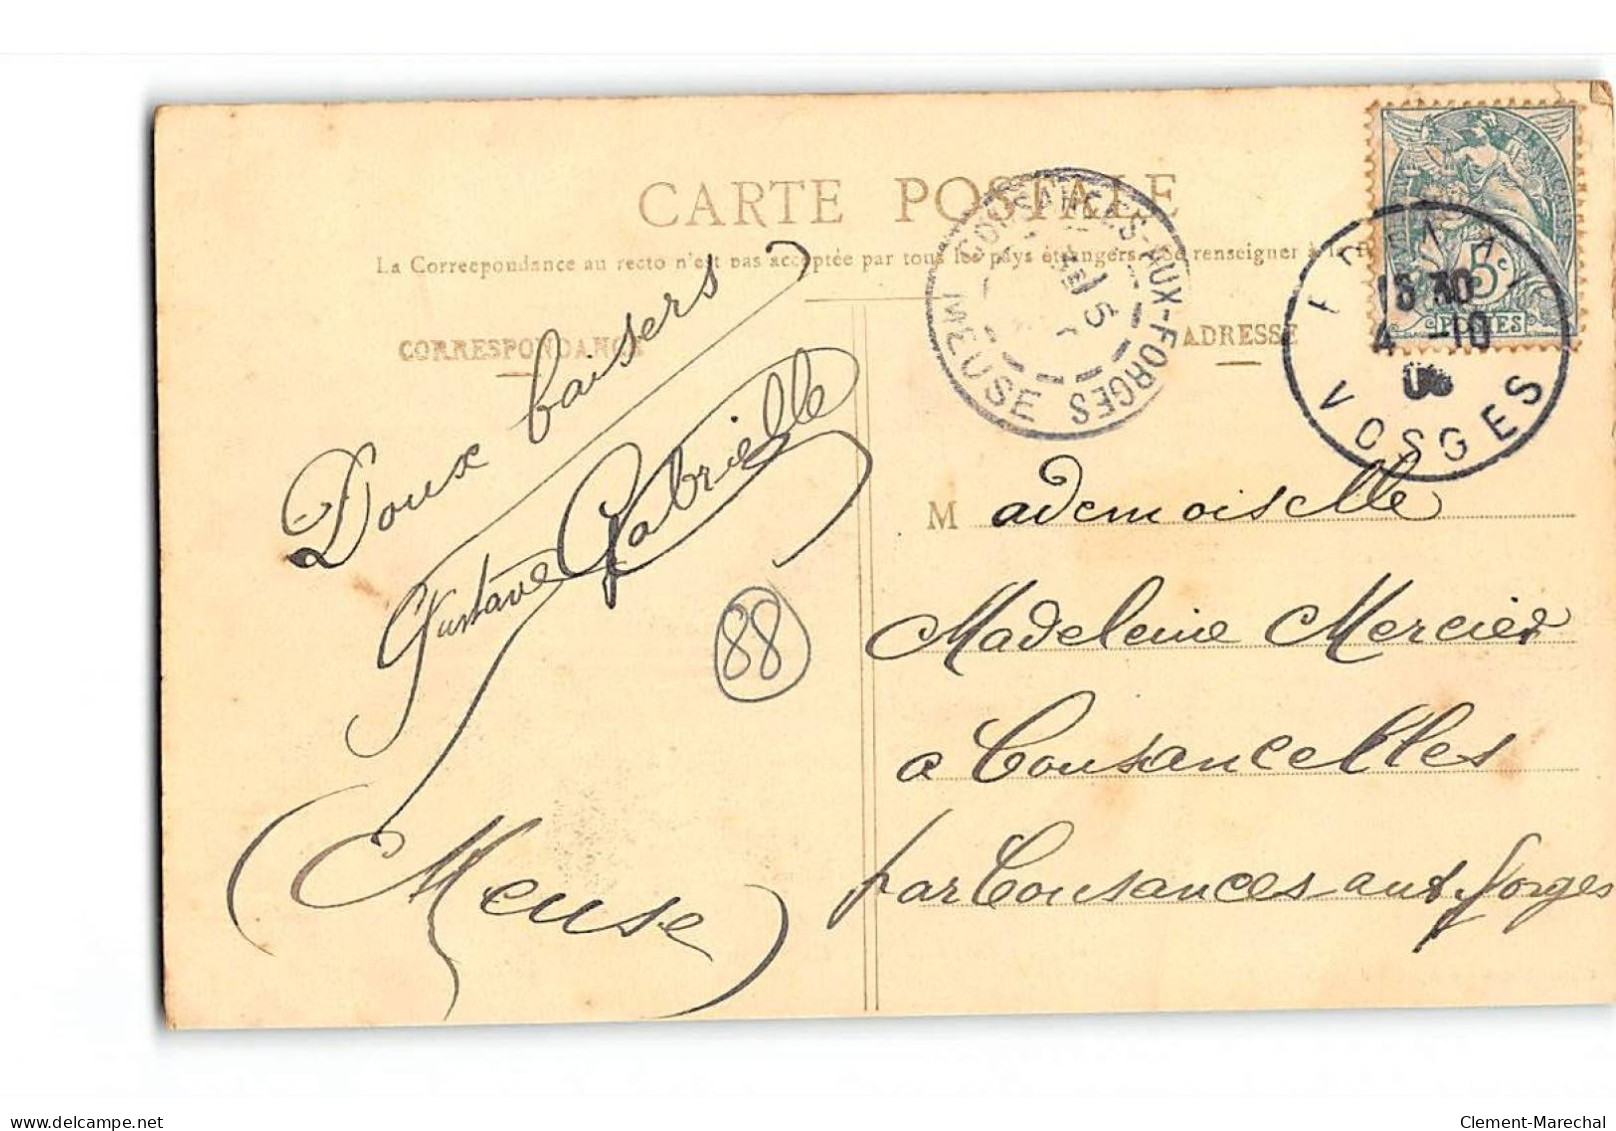 CARTE POSTALE
La Correspondance au recto n'est pas acceptée par tous les pays étrangers. Se renseigner à la
CORRESPONDANCE
ADRESSE
COUSANCES-AUX-FORGES
MEUSE
5
FRANÇAISE
5c
POSTES
EPINAL
18 30
4 -10
VOSGES
Doux baisers
Gustave Gabrielle
88
(Meuse)
Mademoiselle
Madeleine Mercier
a Cousancelles
par Cousances aux forges
delcampe.net
Clement-Marechal